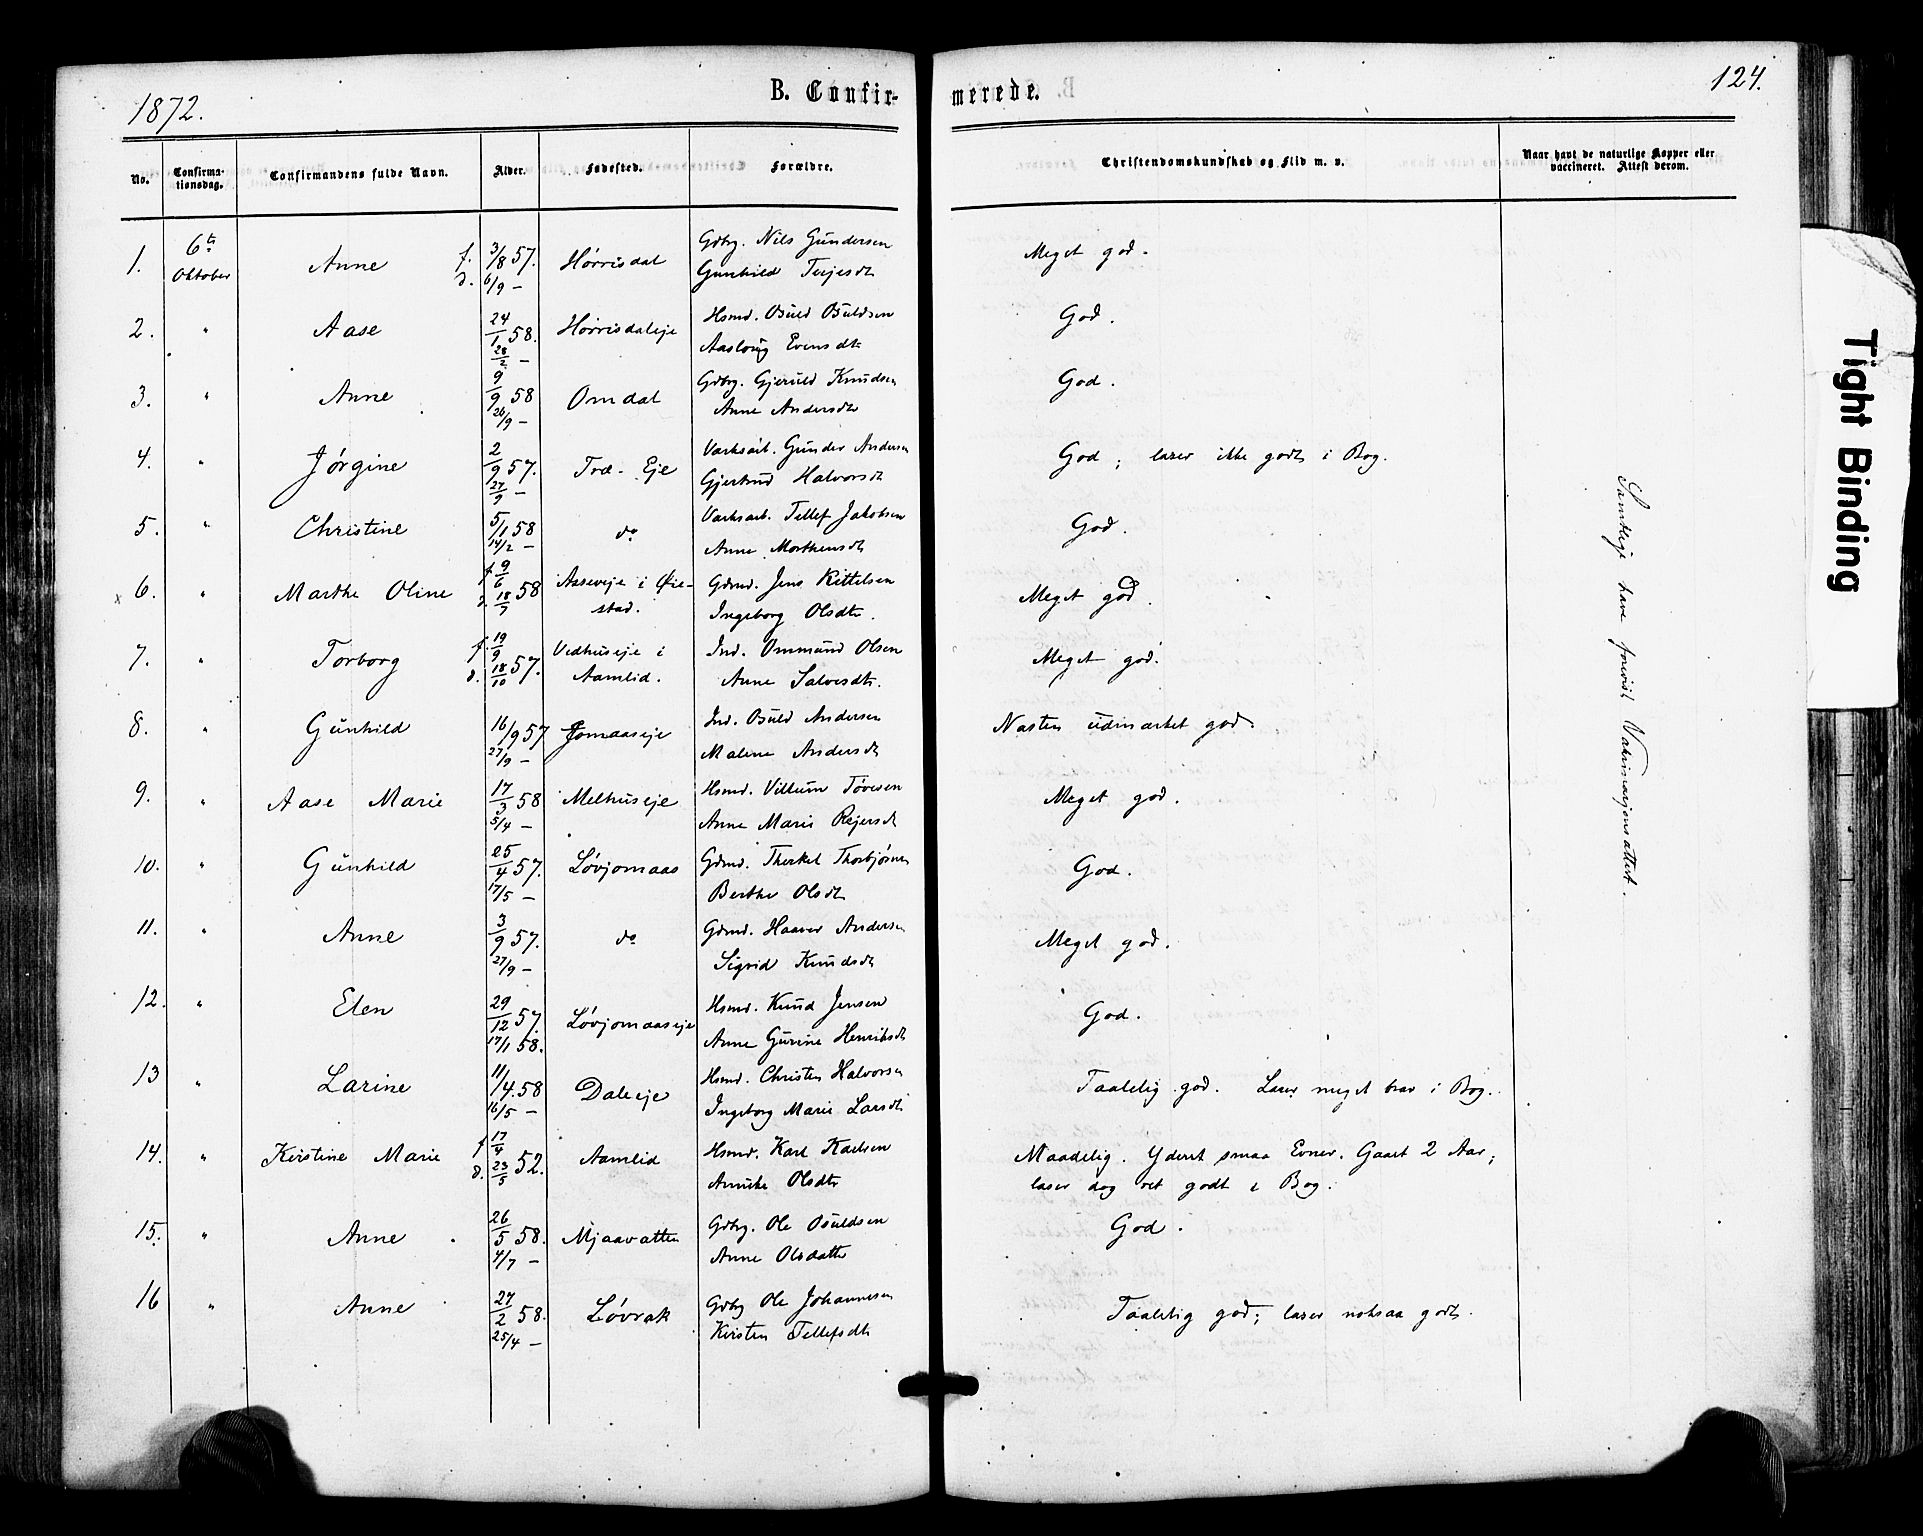 1872.
B. Confir-
merede.
124.
No.
Confirma-
tionsdag.
Confirmandens fulde Navn.
Alder.
Fødested.
Forældre.
Christendomskundskab og Flid m. v.
Naar havt de naturlige Kopper eller
vaccineret. Attest derom.
1. 6te Oktober Anne f. 3/8 57. d. 6/9 – Hørrisdal Gdbrg. Nils Gundersen
Gunhild Terjesdt Meget god.
2. " Aase 24/1 58. 28/2 – Hørrisdaleje Hsmd. Osuld Osuldsen
Aasloug Evensdt. God.
3. " Anne 9/9 58 26/9 – Omdal Gdbrg. Gjeruld Knudsen
Anne Andersdtr God.
4. " Jørgine 2/9 57. 27/9 – Træ-Eje Værksarb. Gunder Andersen
Gjertrud Halvorsdt God; læser ikke godt i Bog.
5. " Christine 5/1 58 14/2 – do Værksarb. Tellef Jakobsen
Anne Morthensdt God.
x 6. " Marthe Oline f 9/6 d. 18/7 58 Aaseveje i Øie-
stad. Gdmd. Jens Kittelsen
Ingeborg Olsdtr. Meget god.
7. " Torborg f. 19/9 d. 18/10 57. Vedhuseje i
Aamlid. Ind. Ommund Olsen
Anne Salvesdt. Meget god.
8. " Gunhild 16/9 57 27/9 – Jomaaseje Ind. Osuld Andersen
Maline Andersdt Næsten udmærket god
9. " Aase Marie 17/3 58 5/4 – Melhuseje Hsmd. Villum Tovesen
Anne Marie Rejersdt Meget god.
10. " Gunhild 25/4 57. 17/5 – Løvjomaas Gdmd. Therkel Thorbjørnsen
Berthe Olsdt God.
11. " Anne 3/9 57. 27/9 – do Gdmd. Haaver Andersen
Sigrid Knudsdt Meget god.
12. " Elen 29/12 57. 17/1 58. Løvjomaaseje Hsmd. Knud Jensen
Anne Gurine Henriksdt God.
13 " Larine 11/4. 58 16/5 – Daleeje Hsmd. Christen Halvorsen
Ingeborg Marie Larsdt Taalelig god. Læser meget brav i Bog.
14. " Kirstine Marie f 17/4 d. 23/5 52. Aamlid Hsmd. Karl Karlsen
Annike Olsdtr Maadelig. Yderst smaa Evner. Gaaet 2 Aar;
læser dog ret godt i Bog.
15. " Anne 26/5 58. 4/7 – Mjaavatten Gdbrg. Ole Osuldsen
Anne Olsdatter God.
16 " Anne 27/2 58. 25/4 – Løvrak Gdbrg Ole Johannesen
Kirsten Tellefsdt Taalelig god; læser noksaa godt.
Samtlige have forevist Vaksinasjonsattest.
Tight Binding